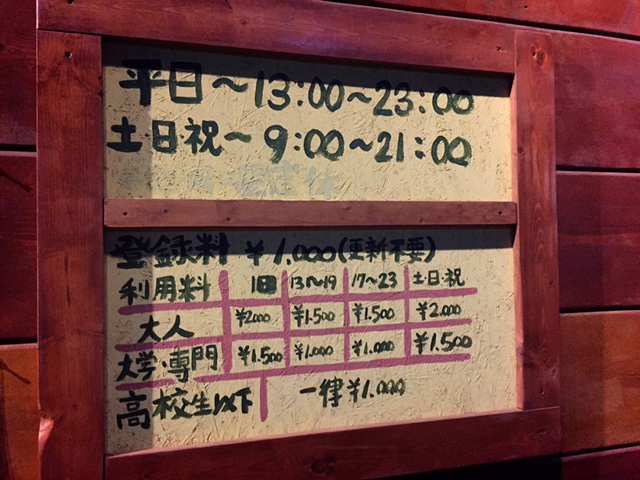 平日～13:00～23:00
土・日・祝～9:00～21:00
登録料 ¥1.000(更新不要)
利用料 1日 13～19 17～23 土・日・祝
大人 ¥2000 ¥1.500 ¥1.500 ¥2.000
大学・専門 ¥1.500 ¥1.000 ¥1.000 ¥1.500
高校生以下 一律¥1.000